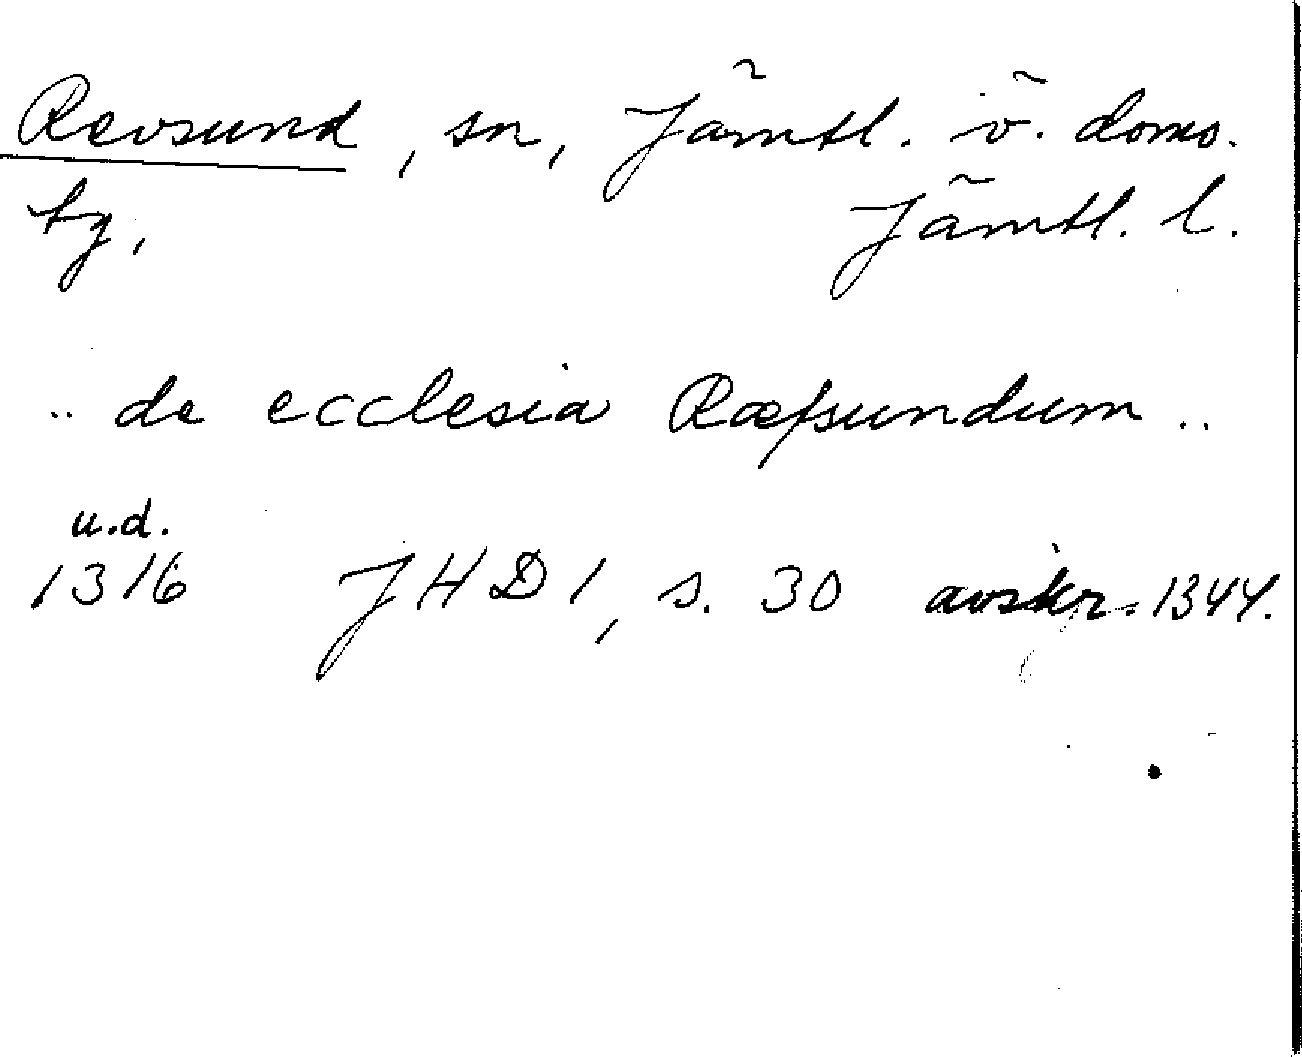 Revsund, sn, Jämtl. ö. doms.
tg, Jämtl. l.
.. de ecclesia Ræfsundum ..
u.d.
1316 JHD 1, s. 30 avskr. 1344.